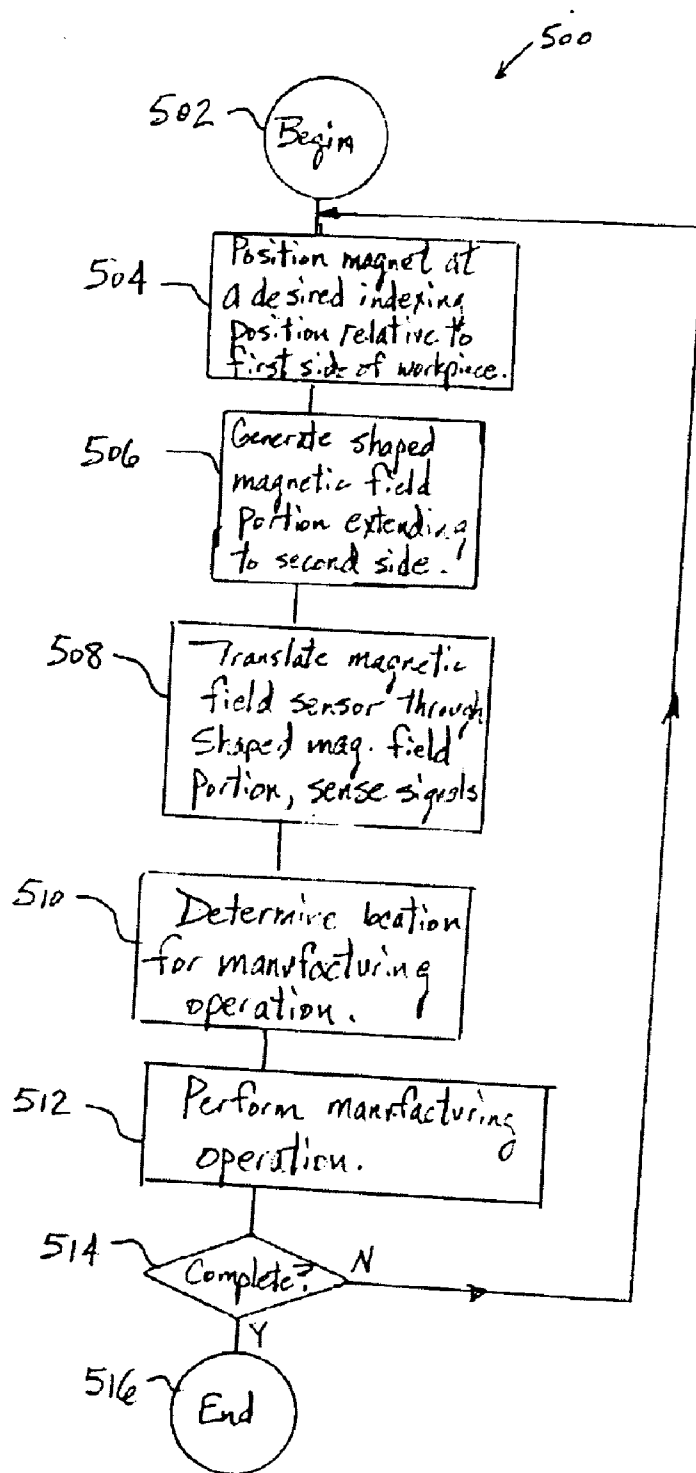 500
502
Begin
504
Position magnet at
a desired indexing
position relative to
first side of workpiece.
506
Generate shaped
magnetic field
portion extending
to second side.
508
Translate magnetic
field sensor through
shaped mag. field
portion, sense signals
510
Determine location
for manufacturing
operation.
512
Perform manufacturing
operation.
514
Complete?
N
Y
516
End